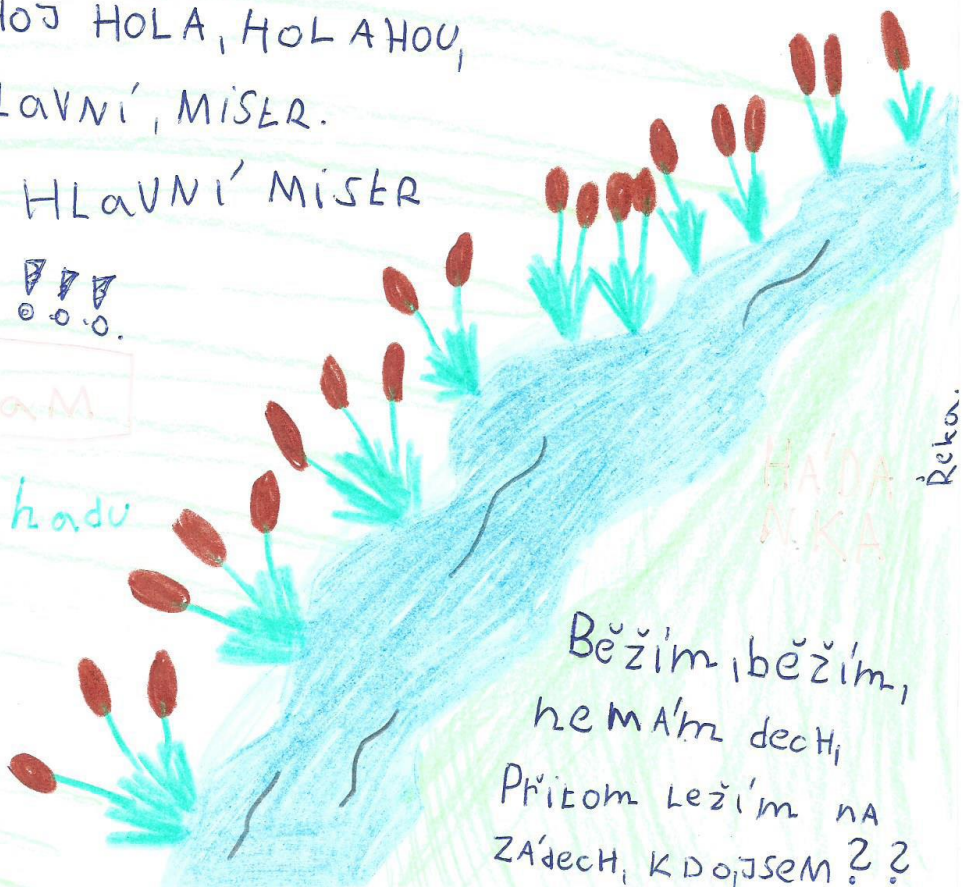 HOJ HOLA, HOLAHOU,
LAVNÍ, MiStR.
HLAVNÍ MiStR
!!!
aM
hadu
HÁDA
NKA
Řeka.
Běžím, běžím,
neMÁm decH,
Přitom Ležím nA
ZÁdecH, KDOJSEM??